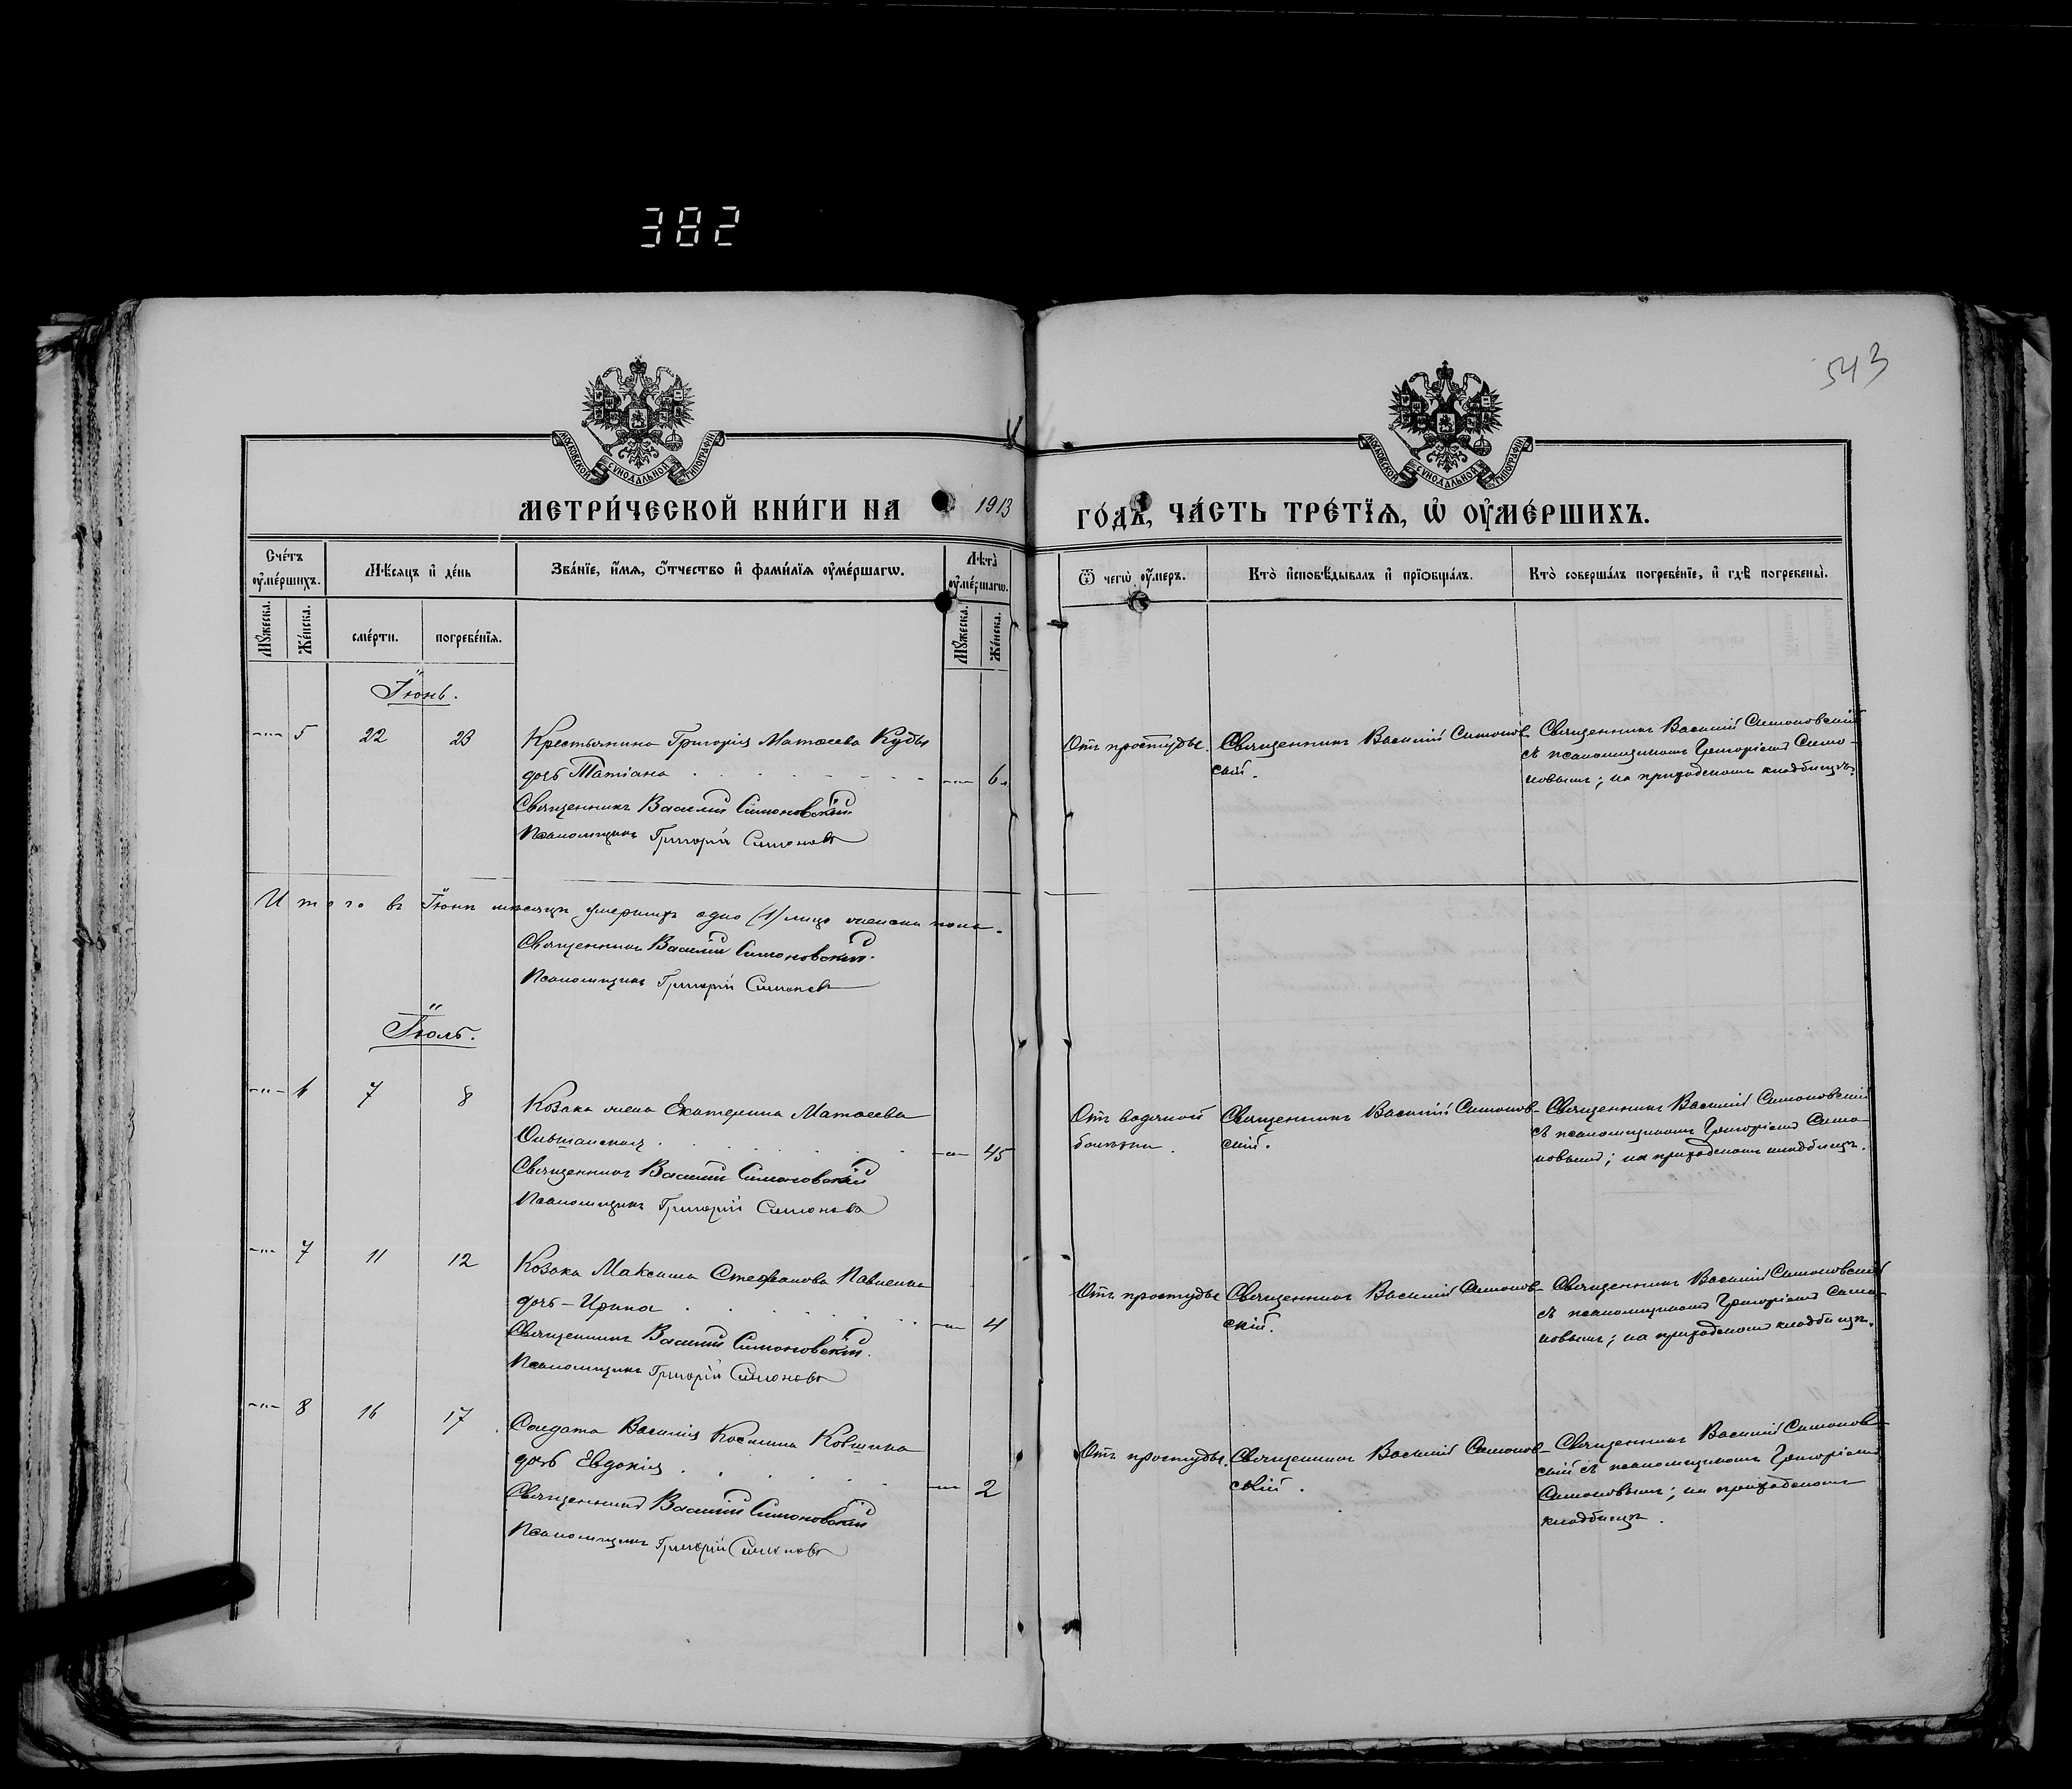 382
543
МОСКОВСКОЙ СѴНОДАЛЬНОЙ ТИПОГРАФІИ
МОСКОВСКОЙ СѴНОДАЛЬНОЙ ТИПОГРАФІИ
МЕТРИ́ЧЕСКОЙ КНИ́ГИ НА 1913 ГО́ДЪ, ЧА́СТЬ ТРЕ́ТЇѦ, Ѽ ОУ҆МЕ́РШИХЪ.
Сче́тъ оу҆ме́ршихъ.
Мꙋ́жеска.
Же́нска.
Мѣ́сяцъ и҆ де́нь
сме́рти.
погребе́нїѧ.
Зва́нїе, и҆́мѧ, ѻ҆́тчество и҆ фами́лїѧ оу҆ме́ршагѡ.
Лѣ́та̀ оу҆ме́ршагѡ.
Мꙋ́жеска.
Же́нска.
Ѿ чегѡ̀ оу҆́меръ.
Кто̀ и҆сповѣ́дывалъ и҆ прїѻбща́лъ.
Кто̀ соверша́лъ погребе́нїе, и҆ гдѣ̀ погребены̀.
Іюнь.
—"— 5 22 23 Крестьянина Григорія Матѳеева Кубы
дочь Татіана —"— 6 л
Священникъ Василій Симоновскій
Псаломщикъ Григорій Симоновъ
Отъ простуды.
Священникъ Василій Симонов-
скій.
Священникъ Василій Симоновскій
съ псаломщикомъ Григоріемъ Симо-
новымъ; на приходскомъ кладбищѣ.
Итого въ Іюнѣ мѣсяцѣ умершихъ одно (1) лицо женска пола.
Священникъ Василій Симоновскій.
Псаломщикъ Григорій Симоновъ
Іюль.
—"— 6 7 8 Козака жена Екатерина Матѳеева
Ольшанская —"— 45
Священникъ Василій Симоновскій
Псаломщикъ Григорій Симоновъ
Отъ водяной
болѣзни.
Священникъ Василій Симонов-
скій.
Священникъ Василій Симоновскій
съ псаломщикомъ Григоріемъ Симо-
новымъ; на приходскомъ кладбищѣ.
—"— 7 11 12 Козака Максима Стефанова Павленка
дочь - Ирина —"— 4
Священникъ Василій Симоновскій.
Псаломщикъ Григорій Симоновъ
Отъ простуды
Священникъ Василій Симонов-
скій.
Священникъ Василій Симоновскій
съ псаломщикомъ Григоріемъ Симо-
новымъ; на приходскомъ кладбищѣ.
—"— 8 16 17 Солдата Василія Косьмина Ковшика
дочь Евдокія —"— 2
Священникъ Василій Симоновскій
Псаломщикъ Григорій Симоновъ
Отъ простуды.
Священникъ Василій Симонов-
скій.
Священникъ Василій Симонов-
скій съ псаломщикомъ Григоріемъ
Симоновымъ; на приходскомъ
кладбищѣ.